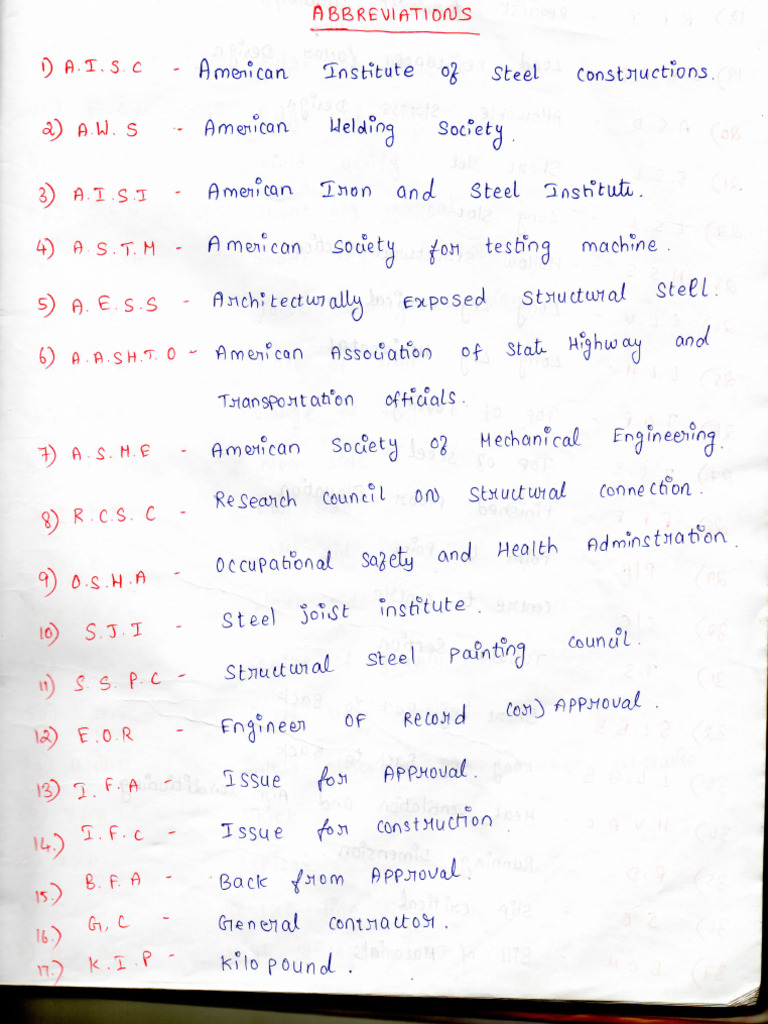 ABBREVIATIONS
1) A.I.S.C - American Institute of Steel constructions.
2) A.W.S - American Welding Society.
3) A.I.S.I - American Iron and Steel Institute.
4) A.S.T.M - American Society for testing machine.
5) A.E.S.S - Architecturally Exposed Structural Stell.
6) A.A.SH.T.O - American Association of State Highway and
Transportation officials.
7) A.S.M.E - American Society of Mechanical Engineering.
8) R.C.S.C - Research council on Structural connection.
9) O.S.H.A - Occupational Safety and Health Adminstration.
10) S.J.I - Steel joist institute.
11) S.S.P.C - Structural Steel painting council.
12) E.O.R - Engineer of Record (or) Approval.
13) I.F.A - Issue for Approval.
14.) I.F.C - Issue for construction.
15.) B.F.A - Back from Approval.
16.) G.C - General contractor.
17.) K.I.P - Kilo pound.